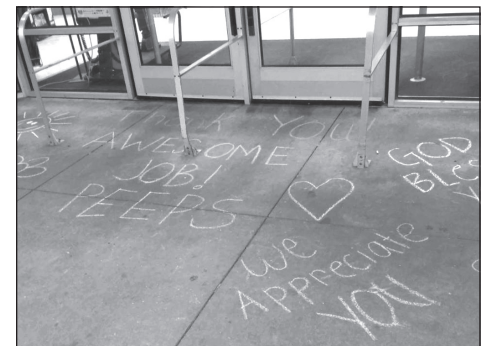 Thank YOU!
AWESOME
JOB!
PEEPS
GOD
BLES
We
Appreciate
YOU